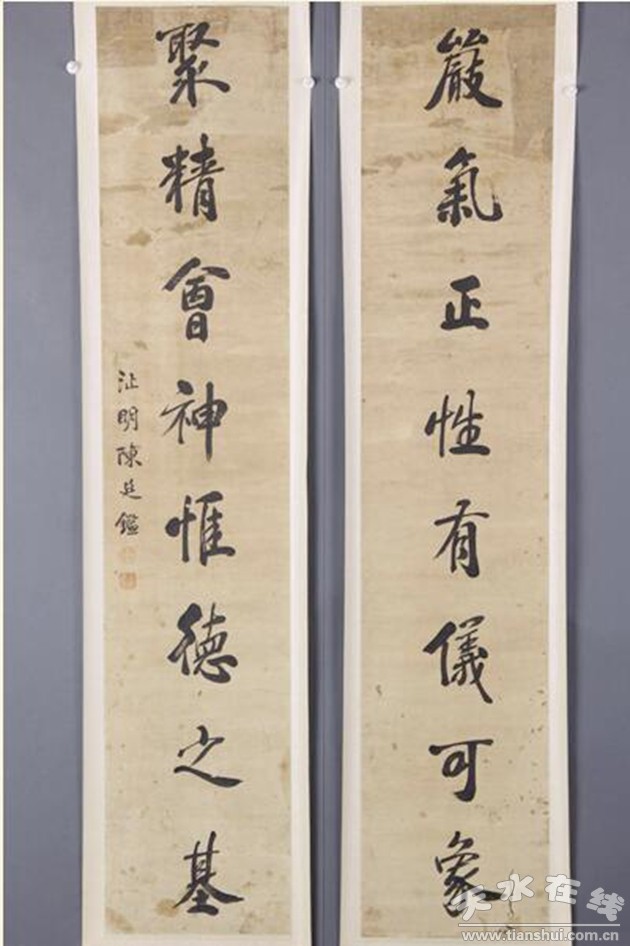 嚴氣正性有儀可象
聚精會神惟德之基
沚明陳廷鑑
天水在线
www.tianshui.com.cn